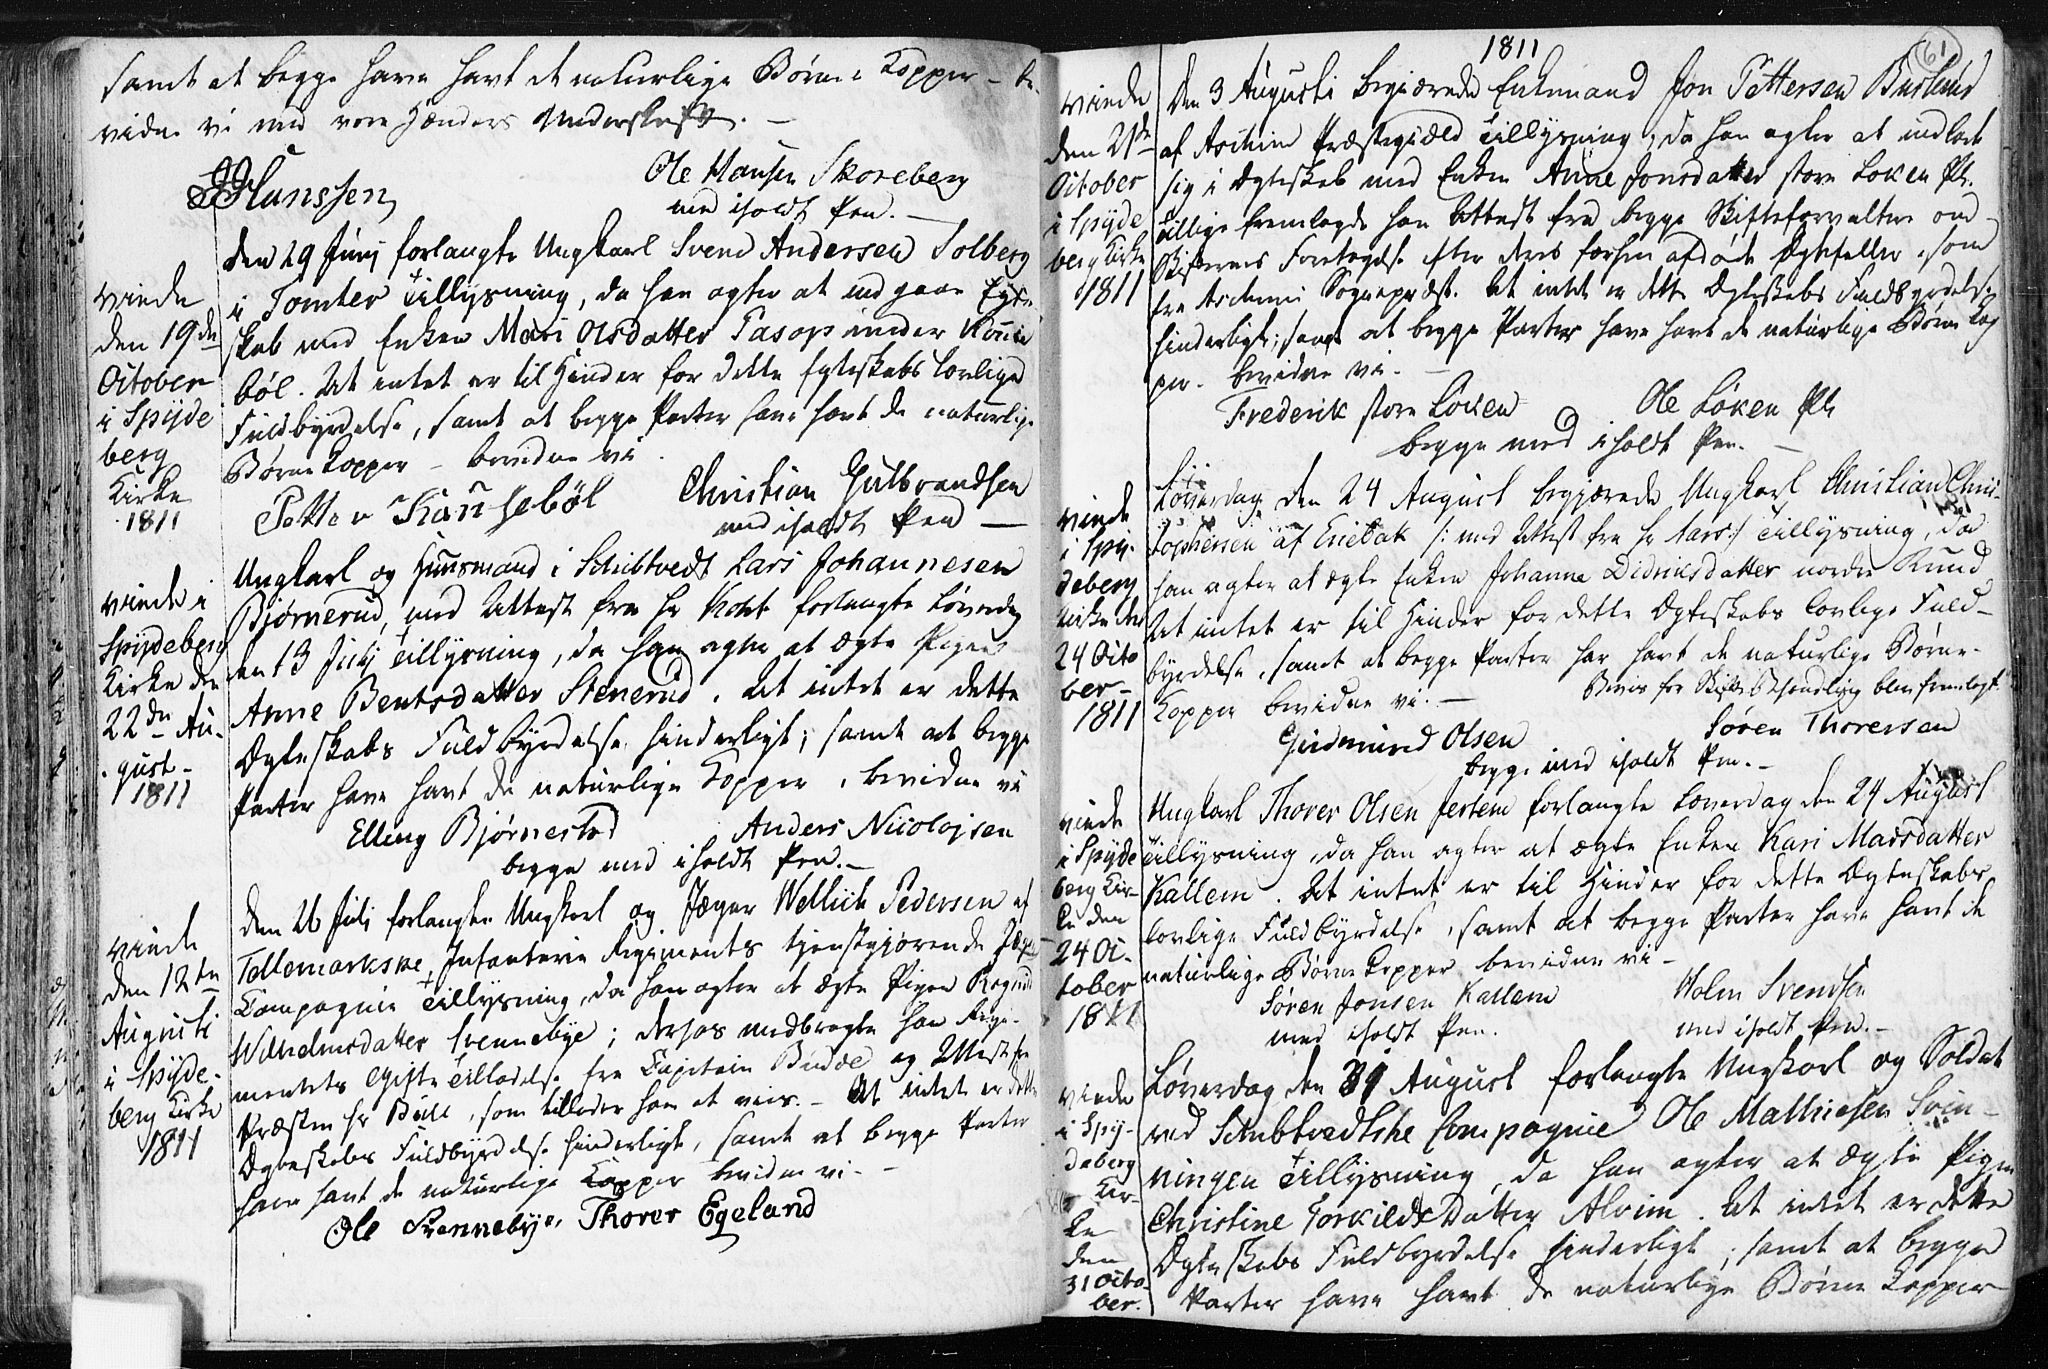 samt at begge have havt de naturlige Børne Kopper – be-
vidne vi med vore Hænders Underskrift. –
Hanssen
Ole Hansen Skoreberg
med iholdt Pen. –
vied
den 19de
October
i Spyde
berg
Kirke
1811
den 29 Junj forlangte Ungkarl Svend Andersen Solberg
i Tomter Tillysning, da han agter at indgaae Egte
skab med Enken Mari Olsdatter Tasop under
böl. At intet er til Hinder for dette Egteskabs lovlige
Fuldbyrdelse, samt at begge Parter have havt de naturlige
Børne Kopper – bevidne vi
Petter
Christian Gulbrandsen
med iholdt Pen –
viede i
Spydeberg
Kirke den
22de Au-
gust –
1811
Ungkarl og Huusmand i Schibtvedt Lars Johannesen
Bjørnerud, med Attest fra Hr forlangte Løverdag
den 13 Julj Tillysning, da han agter at ægte Pigen
Anne Bentsdatter Stenerud. At intet er dette
Ægteskabs Fuldbyrdelse hinderligt; samt at begge
Parter have havt de naturlige Kopper, bevidne vi
Elling Bjørnestad
Anders Nicolajsen
begge med iholdt Pen. –
viede
den 12te
Augusti
i Spyde-
berg Kirke
1811
Den 26 Juli forlangte Ungkarl og Jæger Pedersen af
Tellemarkske Infanterie Regiments tjenstgjørende Jæger
Compagnie Tillysning, da han agter at ægte Pigen
Wilhelmsdatter Svennebye; dersos medbragte han Regi-
mentets Gifte Tilladelse fra Capitain Budde og Attest fra
Præsten Hr Bull, som tillader ham at vies. – At intet er dette
Ægteskabs Fuldbyrdelse hinderligt, samt at begge Parter
have havt de naturlige Kopper bevidne vi –
Ole Svennebye, Thorer Egeland
1811
61
viede
den 21de
October
i Spyde
berg Kirke
1811
Den 3 Augusti begierede Enkemand Jon Pettersen
af Aschim Præstegield Tillysning, da han agter at indlade
sig i Ægteskab med Enken Anne Jonsdatter store Løken Pl.
Tillige fremlagde han Attest fra begge Skifteforvaltere om
Skifternes Foretagelse efter deres forhen afdøde Ægtefeller, som
fra Aschims Sognepræst. At intet er dette Ægteskabs Fuldbyrdelse
hinderligt; samt at begge Parter have havt de naturlige Børne Kop
per. bevidne vi. –
Frederik store Løken
Ole Løken Pl.
begge med iholdt Pen. –
viede
i Spy-
deberg
Kirke den
24 Octo
ber –
1811
Løverdag den 24 August begjærede Ungkarl Christian Chris-
tophersen af Enebak /: med Attest fra Hr Aars:/ Tillysning, da
han agter at ægte Enken Johanne Didriksdatter nordre Rund
At intet er til Hinder for dette Ægteskabs lovlige Fuld-
byrdelse, samt at begge Parter har havt de naturlige Børne-
Kopper bevidne vi. –
Beviis for Skifte Behandling blev fremlagt.
Gudmund Olsen
Søren Thorersen
begge med iholdt Pen. –
viede
i Spyde
berg Kir-
ke den
24 Oc-
tober
1811
Ungkarl Thorer Olsen Jertem forlangte Løverdag den 24 August
Tillysning, da han agter at ægte Enken Kari Madsdatter
Kallem. At intet er til Hinder for dette Ægteskabs
lovlige Fuldbyrdelse, samt at begge Parter have havt de
naturlige Børne Kopper bevidne vi –
Søren Jonsen Kallem
med iholdt Pen.
Holm Svendsen
med iholdt Pen. –
viede
i Spy-
deberg
Kir-
ke
den
31 Octo-
ber.
Løverdag den 31 August forlangte Ungkarl og Soldat
ved Schibtvedtske Compagnie Ole Mathiesen Svin-
ningen Tillysning, da han agter at ægte Pigen
Christine Torkildsdatter Alvim. At intet er dette
Ægteskabs Fuldbyrdelse hinderligt; samt at begge
Parter have havt de naturlige Børne Kopper